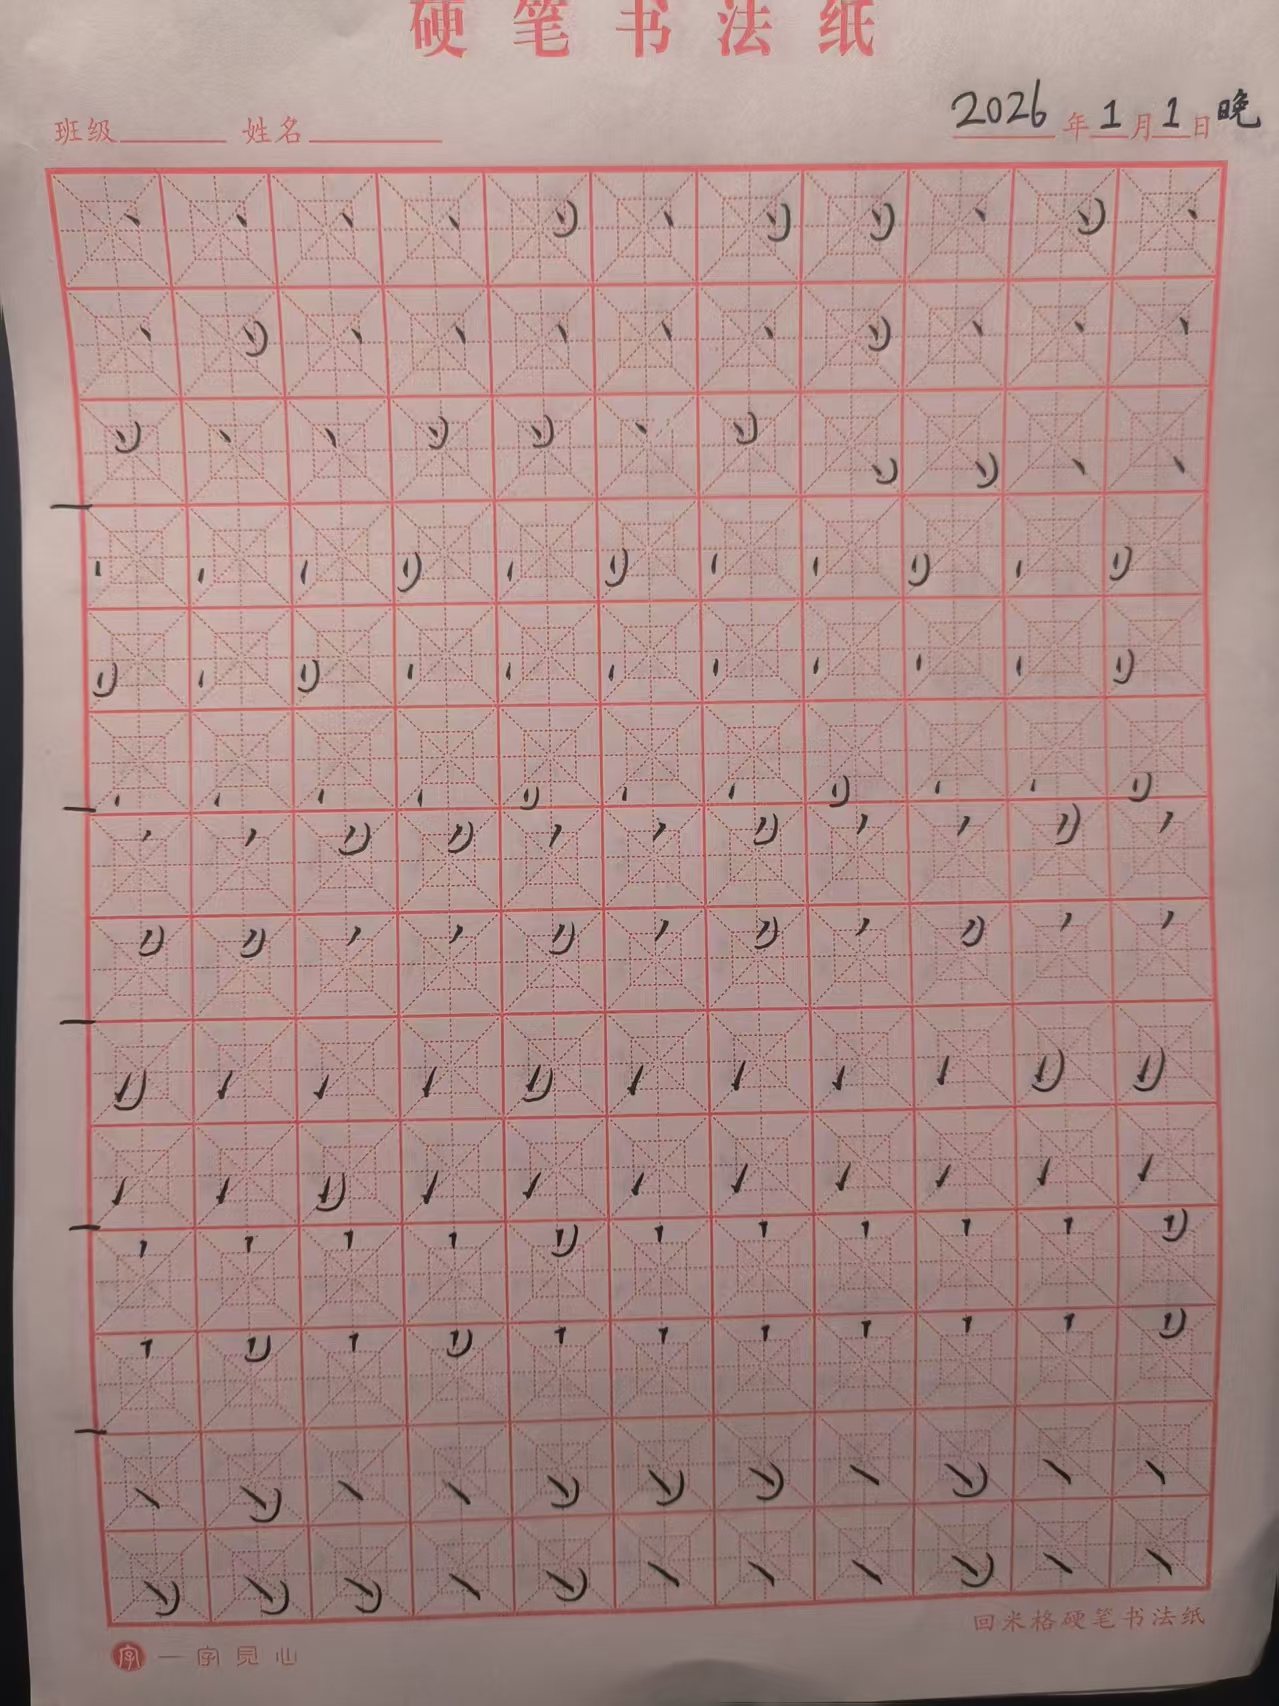 硬笔书法纸
班级 姓名 2026年1月1日晚
回米格硬笔书法纸
字 一字見心